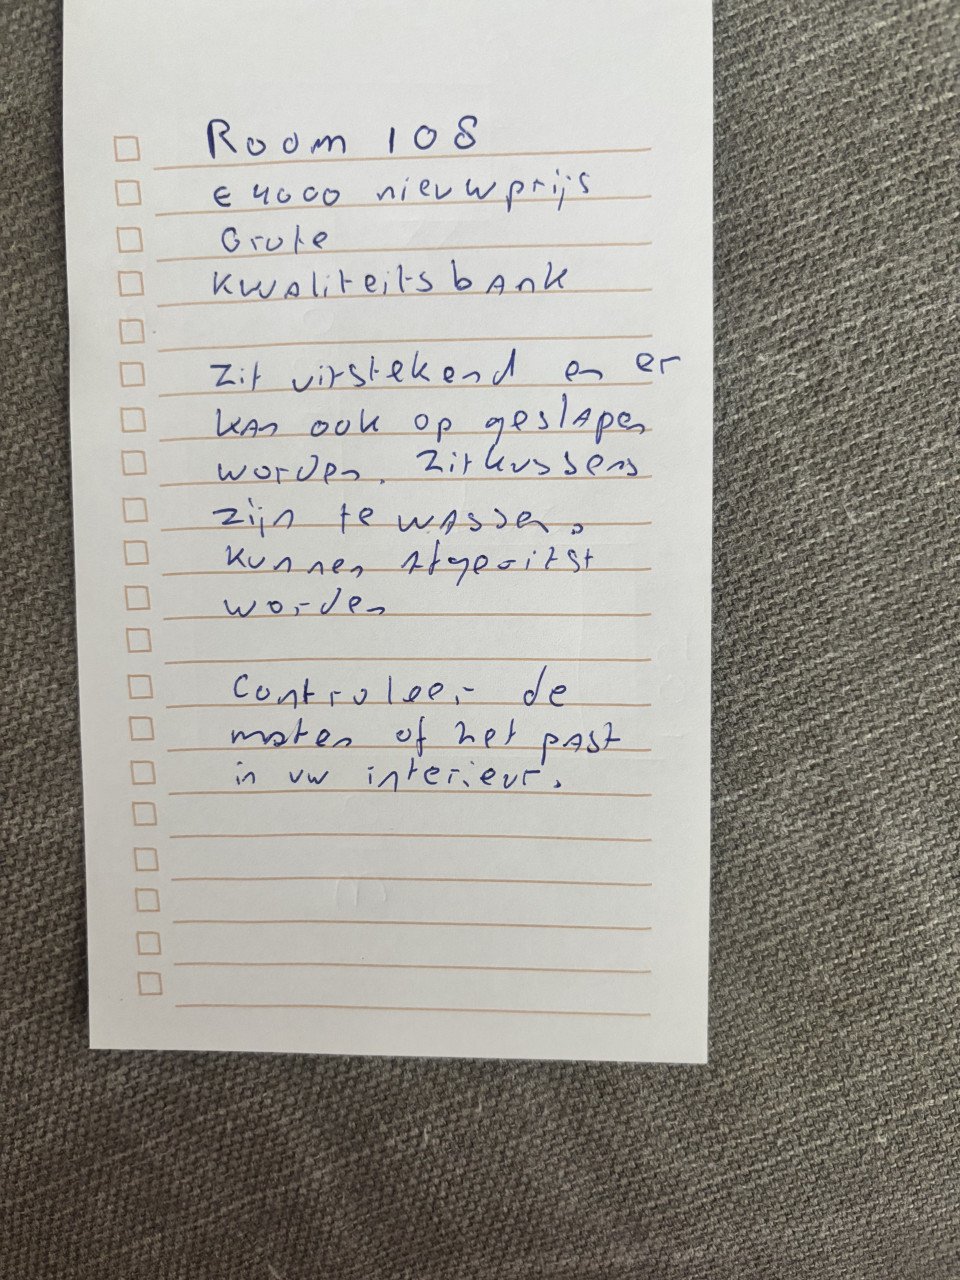 Room 108
€ 4000 nieuwprijs
Grote
Kwaliteitsbank
Zit uitstekend en er
kan ook op geslapen
worden. Zitkussens
zijn te wassen.
Kunnen afgeritst
worden
Controleer de
maten of het past
in uw interieur.